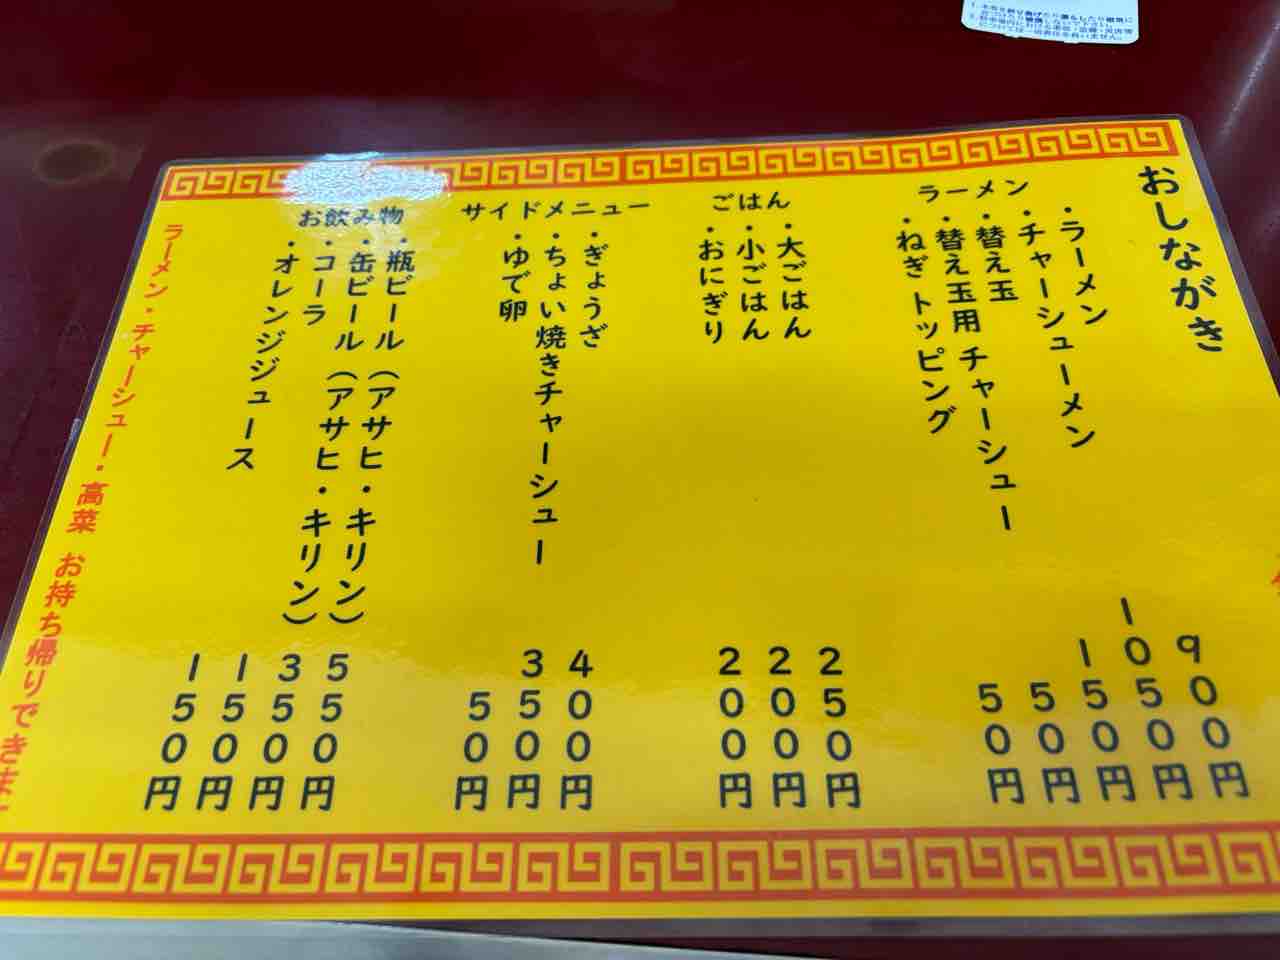 おしながき
ラーメン
・ラーメン 900円
・チャーシューメン 1050円
・替え玉 150円
・替え玉用チャーシュー 50円
・ねぎトッピング 50円
ごはん
・大ごはん 250円
・小ごはん 200円
・おにぎり 200円
サイドメニュー
・ぎょうざ 400円
・ちょい焼きチャーシュー 350円
・ゆで卵 50円
お飲み物
・瓶ビール（アサヒ・キリン） 550円
・缶ビール（アサヒ・キリン） 350円
・コーラ 150円
・オレンジジュース 150円
ラーメン・チャーシュー・高菜 お持ち帰りできま